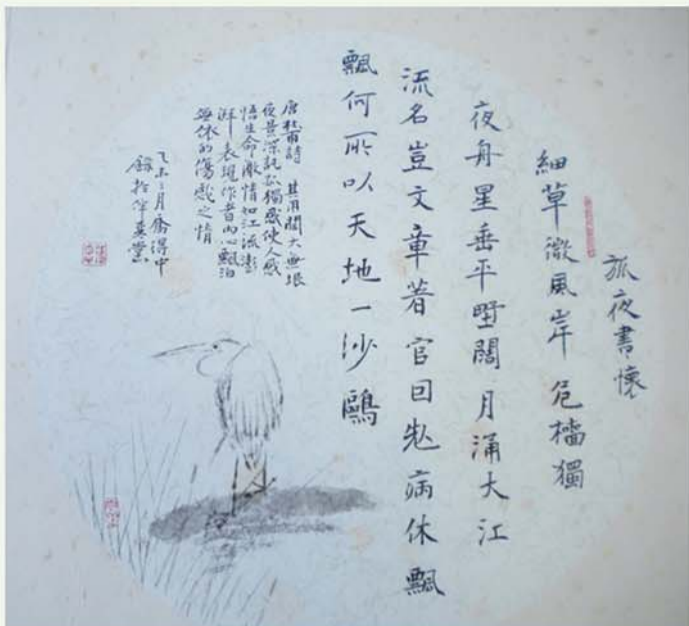 孤夜書懷
細草微風岸危檣獨
夜舟星垂平墅闊月涌大江
流名豈文章著官因老病休飄
飄何所以天地一沙鷗
唐杜甫詩 其用闊大無垠
夜景深託孤獨感使人感
悟生命激情如江流澎
湃表現作者內心飄泊
無依的傷感之情
乙未二月喬得中
錄於倬英堂